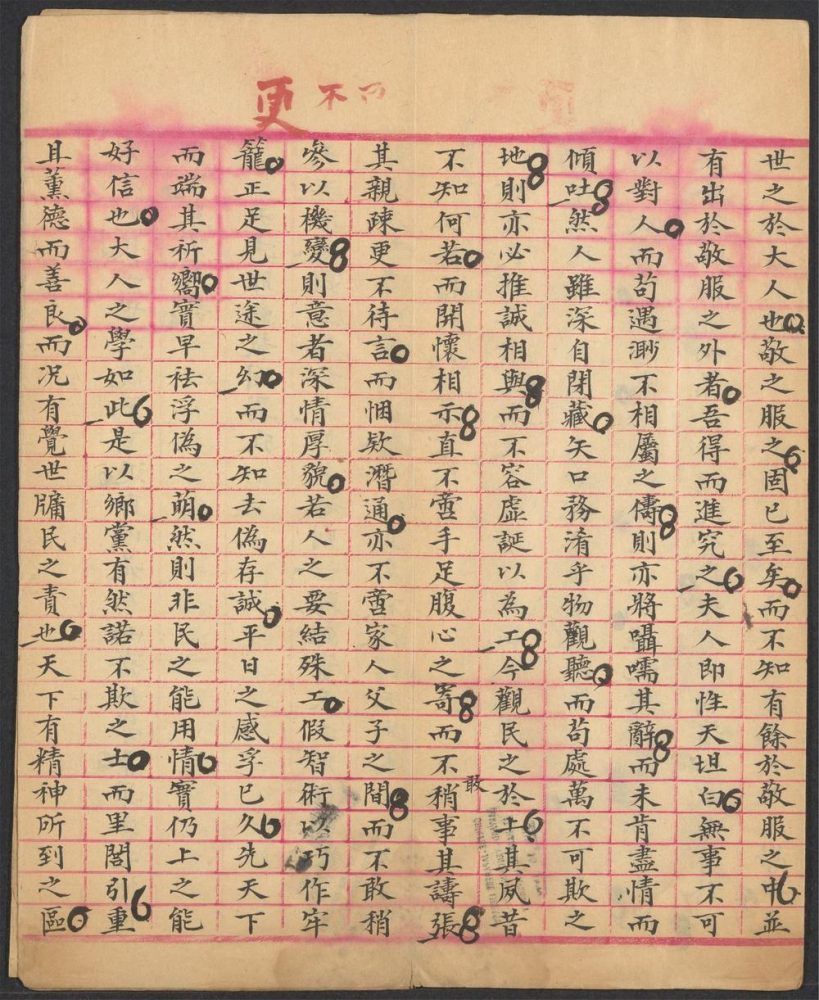 更不
世之於大人也敬之服之固已至矣而不知有餘於敬服之中並
有出於敬服之外者吾得而進究之夫人即性天坦白無事不可
以對人而苟遇渺不相屬之儔則亦將囁嚅其辭而未肯盡情而
傾吐然人雖深自閉藏矢口務淆乎物觀聽而苟處萬不可欺之
地則亦必推誠相與而不容虛誕以為工今觀民之於上其夙昔
不知何若而開懷相示直不啻手足腹心之寄而不敢稍事其譸張
其親疎更不待言而悃欵潛通亦不啻家人父子之間而不敢稍
參以機變則意者深情厚貌若人之要結殊工假智術以巧作牢
籠正足見世途之幻而不知去偽存誠平日之感孚已久先天下
而端其祈嚮實早祛浮偽之萌然則非民之能用情實仍上之能
好信也大人之學如此是以鄉黨有然諾不欺之士而里閭引重
且薰德而善良而况有覺世牖民之責也天下有精神所到之區